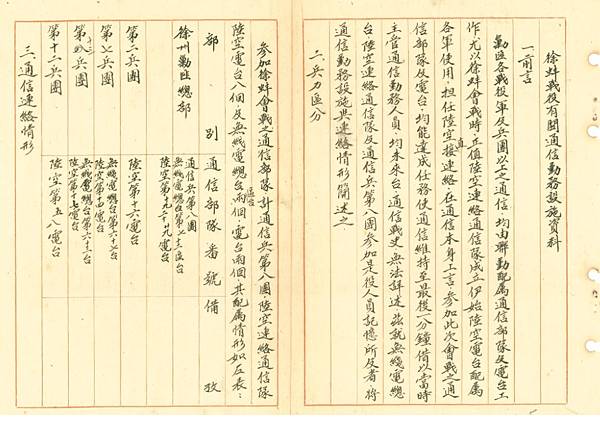 徐蚌戰役有關通信勤務設施資料
一、前言
勦匪各戰役軍及兵團以上之通信均由聯勤配屬通信部隊及電台工
作尤以徐蚌會戰時正值陸空連絡通信隊成立伊始陸空電台配屬
各軍使用担任陸空直接連絡在通信本身工言參加此次會戰之通
信部隊及電台均能達成任務使通信維持至最後一分鐘惜以當時
主管通信勤務人員均未來台通信戰史無法詳述茲就無綫電總
台陸空連絡通信隊及通信兵第八團參加是役人員記憶所及者將
通信勤務設施與連絡情形簡述之
二、兵力區分
參加徐蚌會戰之通信部隊計通信兵第八團陸空連絡通信隊
陸空電台八個及無綫電總台兩個區台電台兩個其配屬情形如左表：
部別 通信部隊番號 備攷
徐州勦匪總部 通信兵第八團
無綫電總台第七十三區台
陸空第九、二十、二九電台
第二兵團 陸空第十六電台
第七兵團 無綫電總台第六十七台
陸空第十四電台
第十六兵團 無綫電總台第六十六台
陸空第十七電台
第十二兵團 陸空第五八電台
三、通信連絡情形